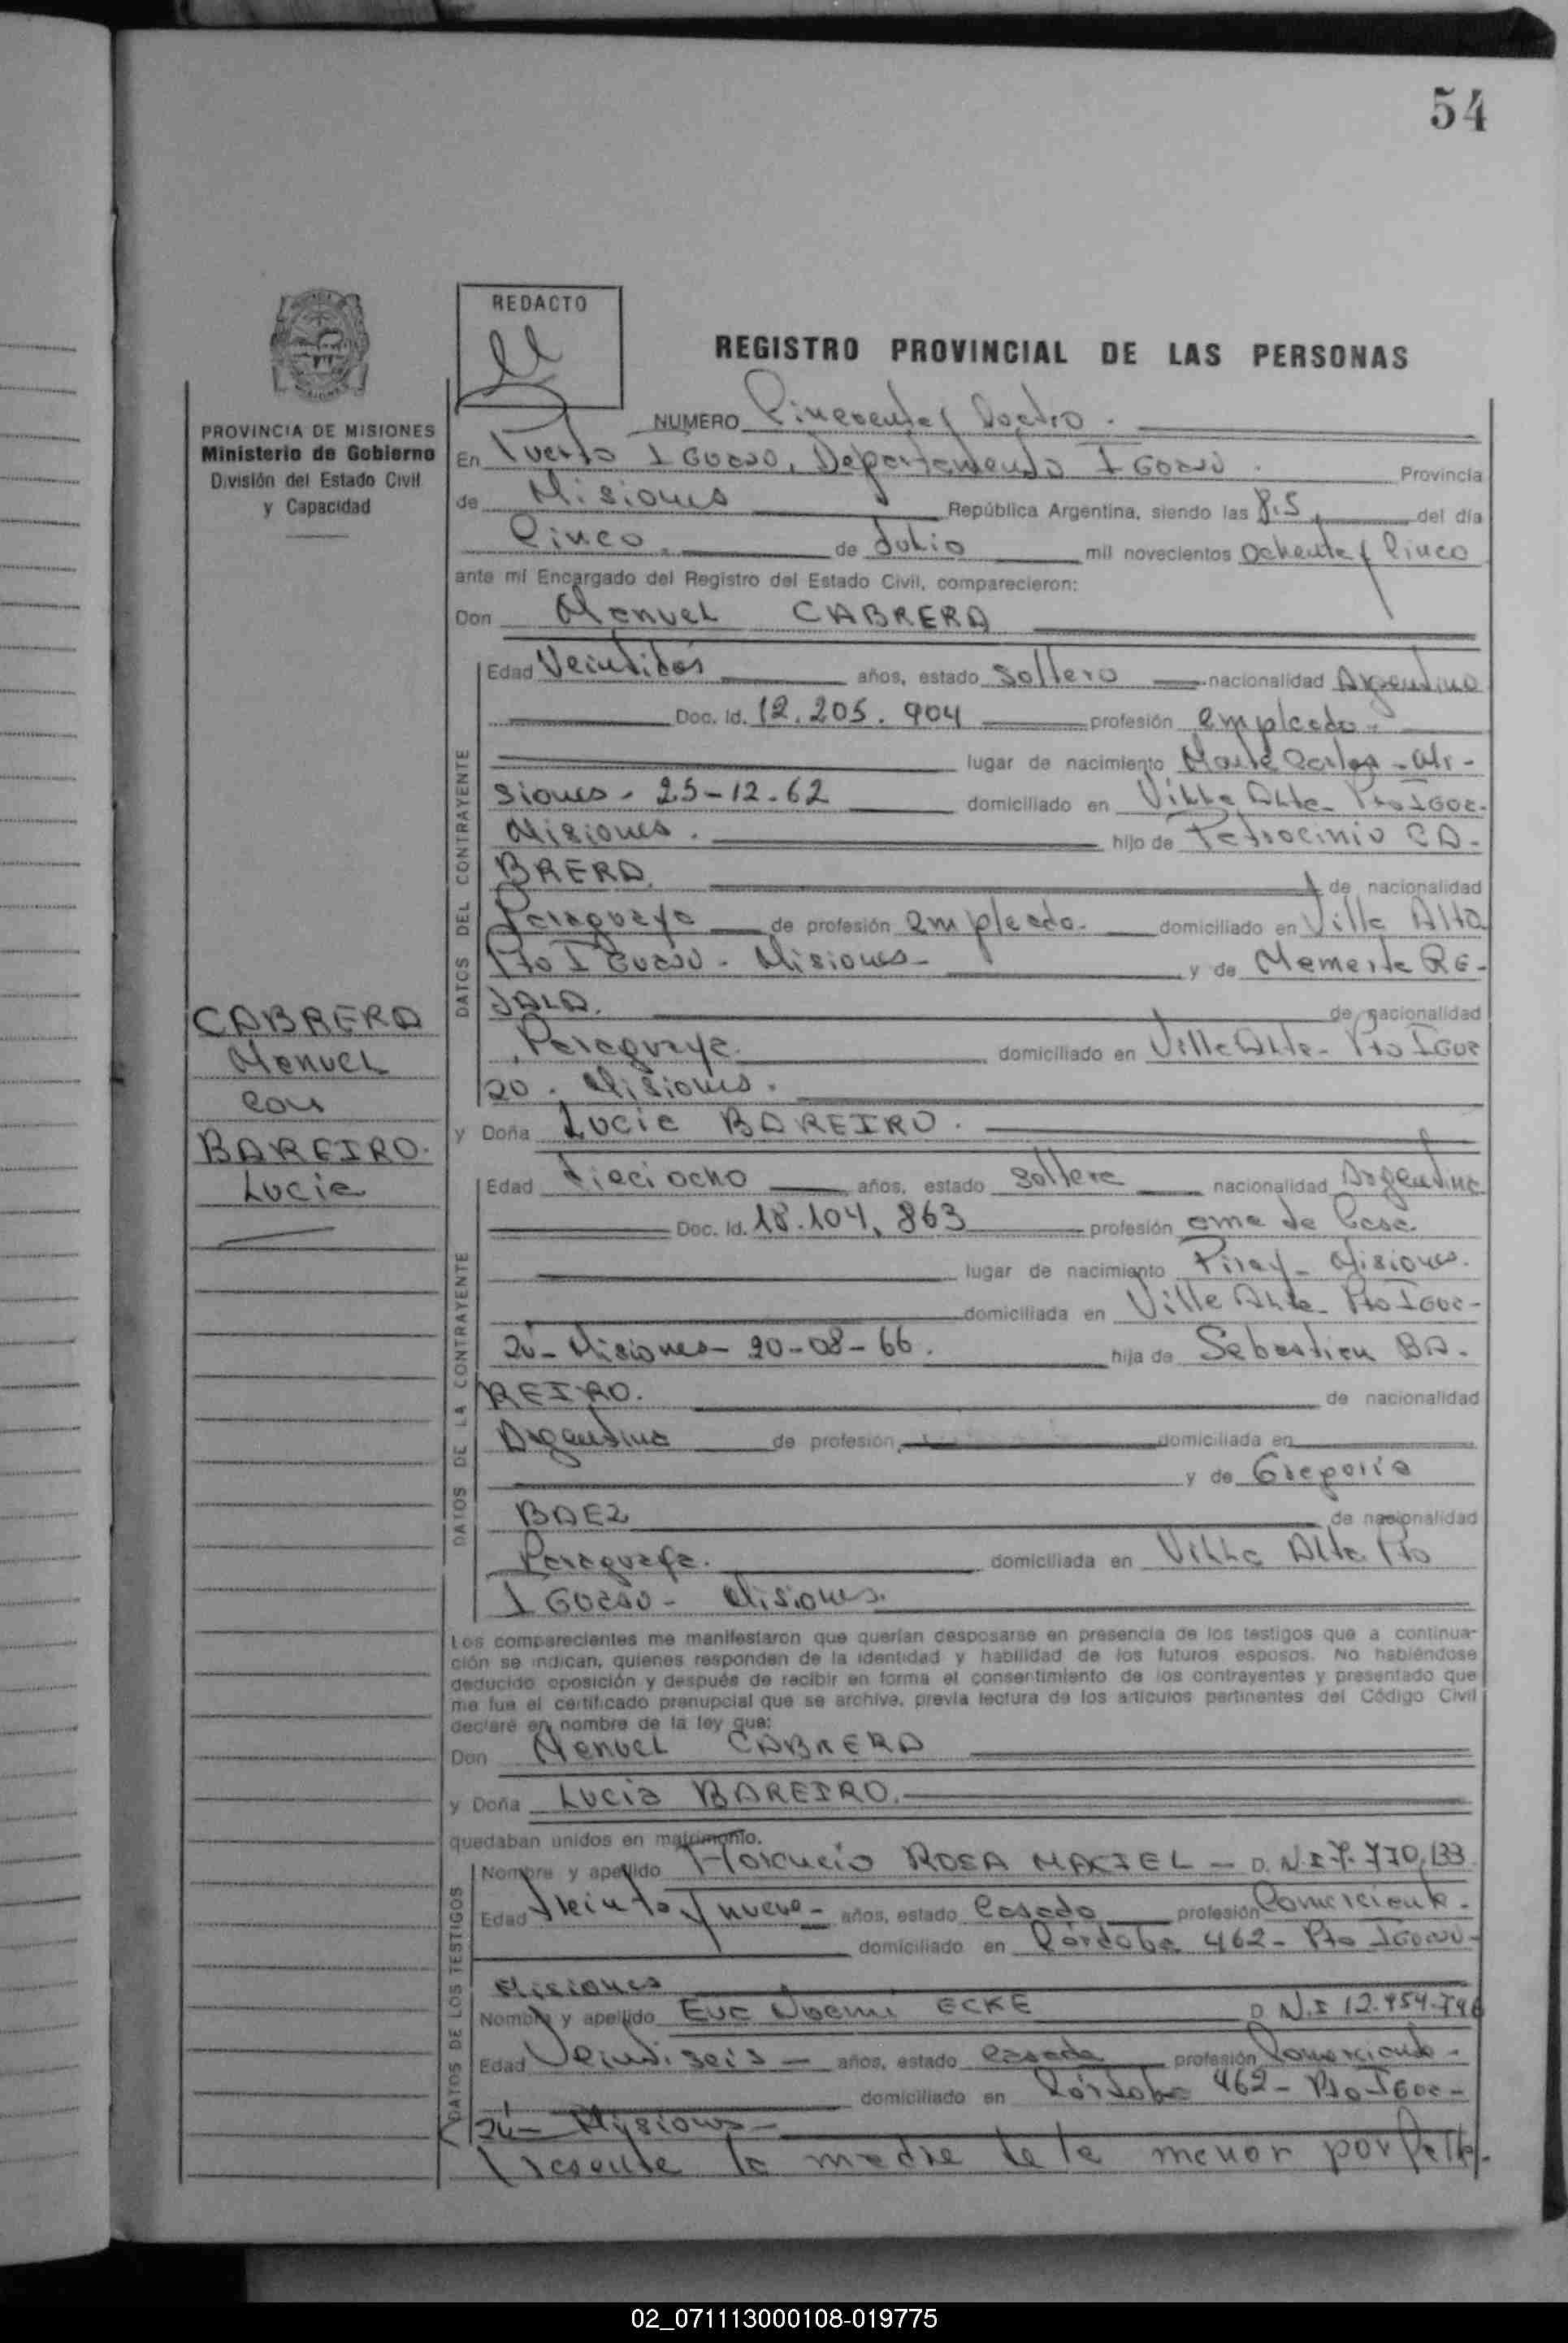 54
REDACTO
REGISTRO PROVINCIAL DE LAS PERSONAS
PROVINCIA DE MISIONES
Ministerio de Gobierno
División del Estado Civil
y Capacidad
NUMERO Cincuenta y Cuatro.
En Puerto IGUAZU, Departamento IGUAZU. Provincia
de Misiones República Argentina, siendo las 8.5 del día
Cinco. de Julio mil novecientos ochenta y Cinco
ante mí Encargado del Registro del Estado Civil, comparecieron:
Don Manuel CABRERA
DATOS DEL CONTRAYENTE
Edad Veintidos años, estado Soltero nacionalidad Argentino
Doc. Id. 12.205.904 profesión empleado.
lugar de nacimiento Monte Carlo - Mi-
siones - 25-12-62 domiciliado en Villa Alta - Pto IGUA-
Misiones. hijo de Patrocinio CA-
BRERA. de nacionalidad
Paraguaya de profesión empleado. domiciliado en Villa Alta
Pto IGUAZU - Misiones - y de Memerta RE-
JALA. de nacionalidad
Paraguaya. domiciliado en Villa Alta - Pto IGUA
zu. Misiones.
CABRERA
Manuel
con
BAREIRO.
Lucia
y Doña Lucia BAREIRO.
DATOS DE LA CONTRAYENTE
Edad Dieciocho años, estado Soltera nacionalidad Argentina
Doc. Id. 18.104.863 profesión ama de Casa.
lugar de nacimiento Piray - Misiones.
domiciliada en Villa Alta - Pto IGUA-
zú - Misiones - 20-08-66. hija de Sebastian BA-
REIRO. de nacionalidad
Argentina de profesión domiciliada en
y de Gregoria
BAEZ de nacionalidad
Paraguaya. domiciliada en Villa Alta Pto
IGUAZU - Misiones.
Los comparecientes me manifestaron que querían desposarse en presencia de los testigos que a continua-
ción se indican, quienes responden de la identidad y habilidad de los futuros esposos. No habiéndose
deducido oposición y después de recibir en forma el consentimiento de los contrayentes y presentado que
me fue el certificado prenupcial que se archiva, previa lectura de los artículos pertinentes del Código Civil
declaré en nombre de la ley que:
Don Manuel CABRERA
y Doña Lucia BAREIRO.
quedaban unidos en matrimonio.
DATOS DE LOS TESTIGOS
Nombre y apellido ROSA MACIEL - D.N.I 7.770.133
Edad treinta y nueve - años, estado Casado profesión Comerciante.
domiciliado en Córdoba 462 - Pto IGUAZU -
Misiones
Nombre y apellido Eva Noemi ECKE D.N.I 12.954.796
Edad Veintiseis - años, estado casada profesión Comerciante -
domiciliado en Córdoba 462 - Pto IGUA -
zú - Misiones -
Presente la madre de la menor por
02_071113000108-019775